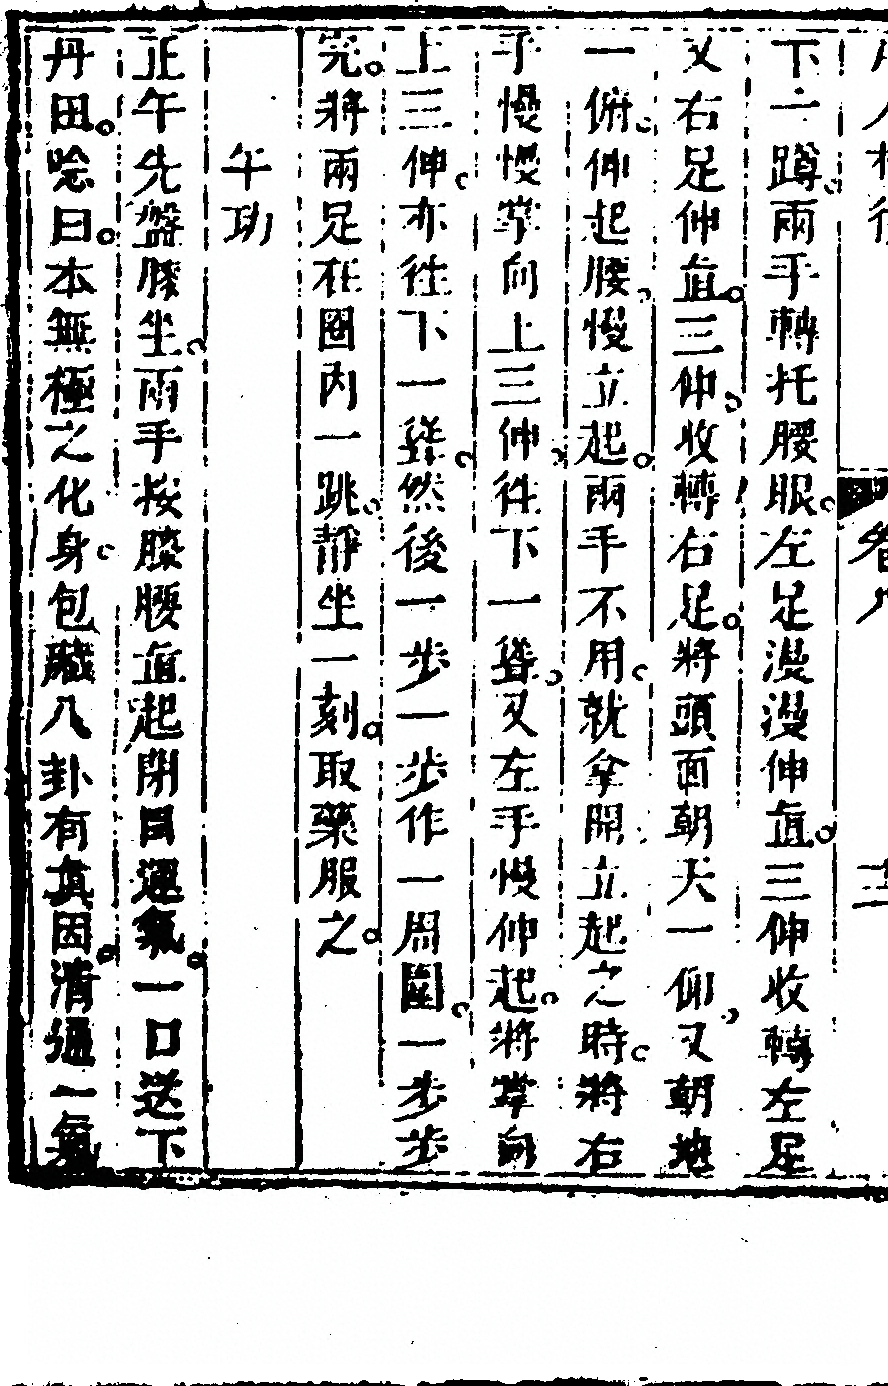 下一蹲。兩手轉托腰眼。左足漫漫伸直。三伸收轉左足
又右足伸直。三伸。收轉右足。將頭面朝天一仰。又朝地
一俯。伸起腰。慢立起。兩手不用。就拿開立起之時。將右
手慢慢掌向上三伸。往下一聳。又左手慢伸起。將掌向
上三伸。亦往下一聳。然後一步一步作一周圍。一步步
完。將兩足在圈內一跳。靜坐一刻。取藥服之。
午功
正午先盤膝坐。兩手按膝腰直起閉目運氣。一口送下
丹田。唸曰。本無極之化身。包藏八卦有真因。清通一氣